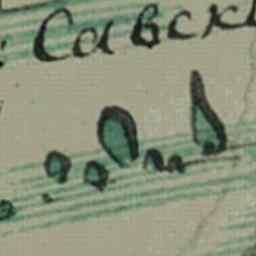 : Савск